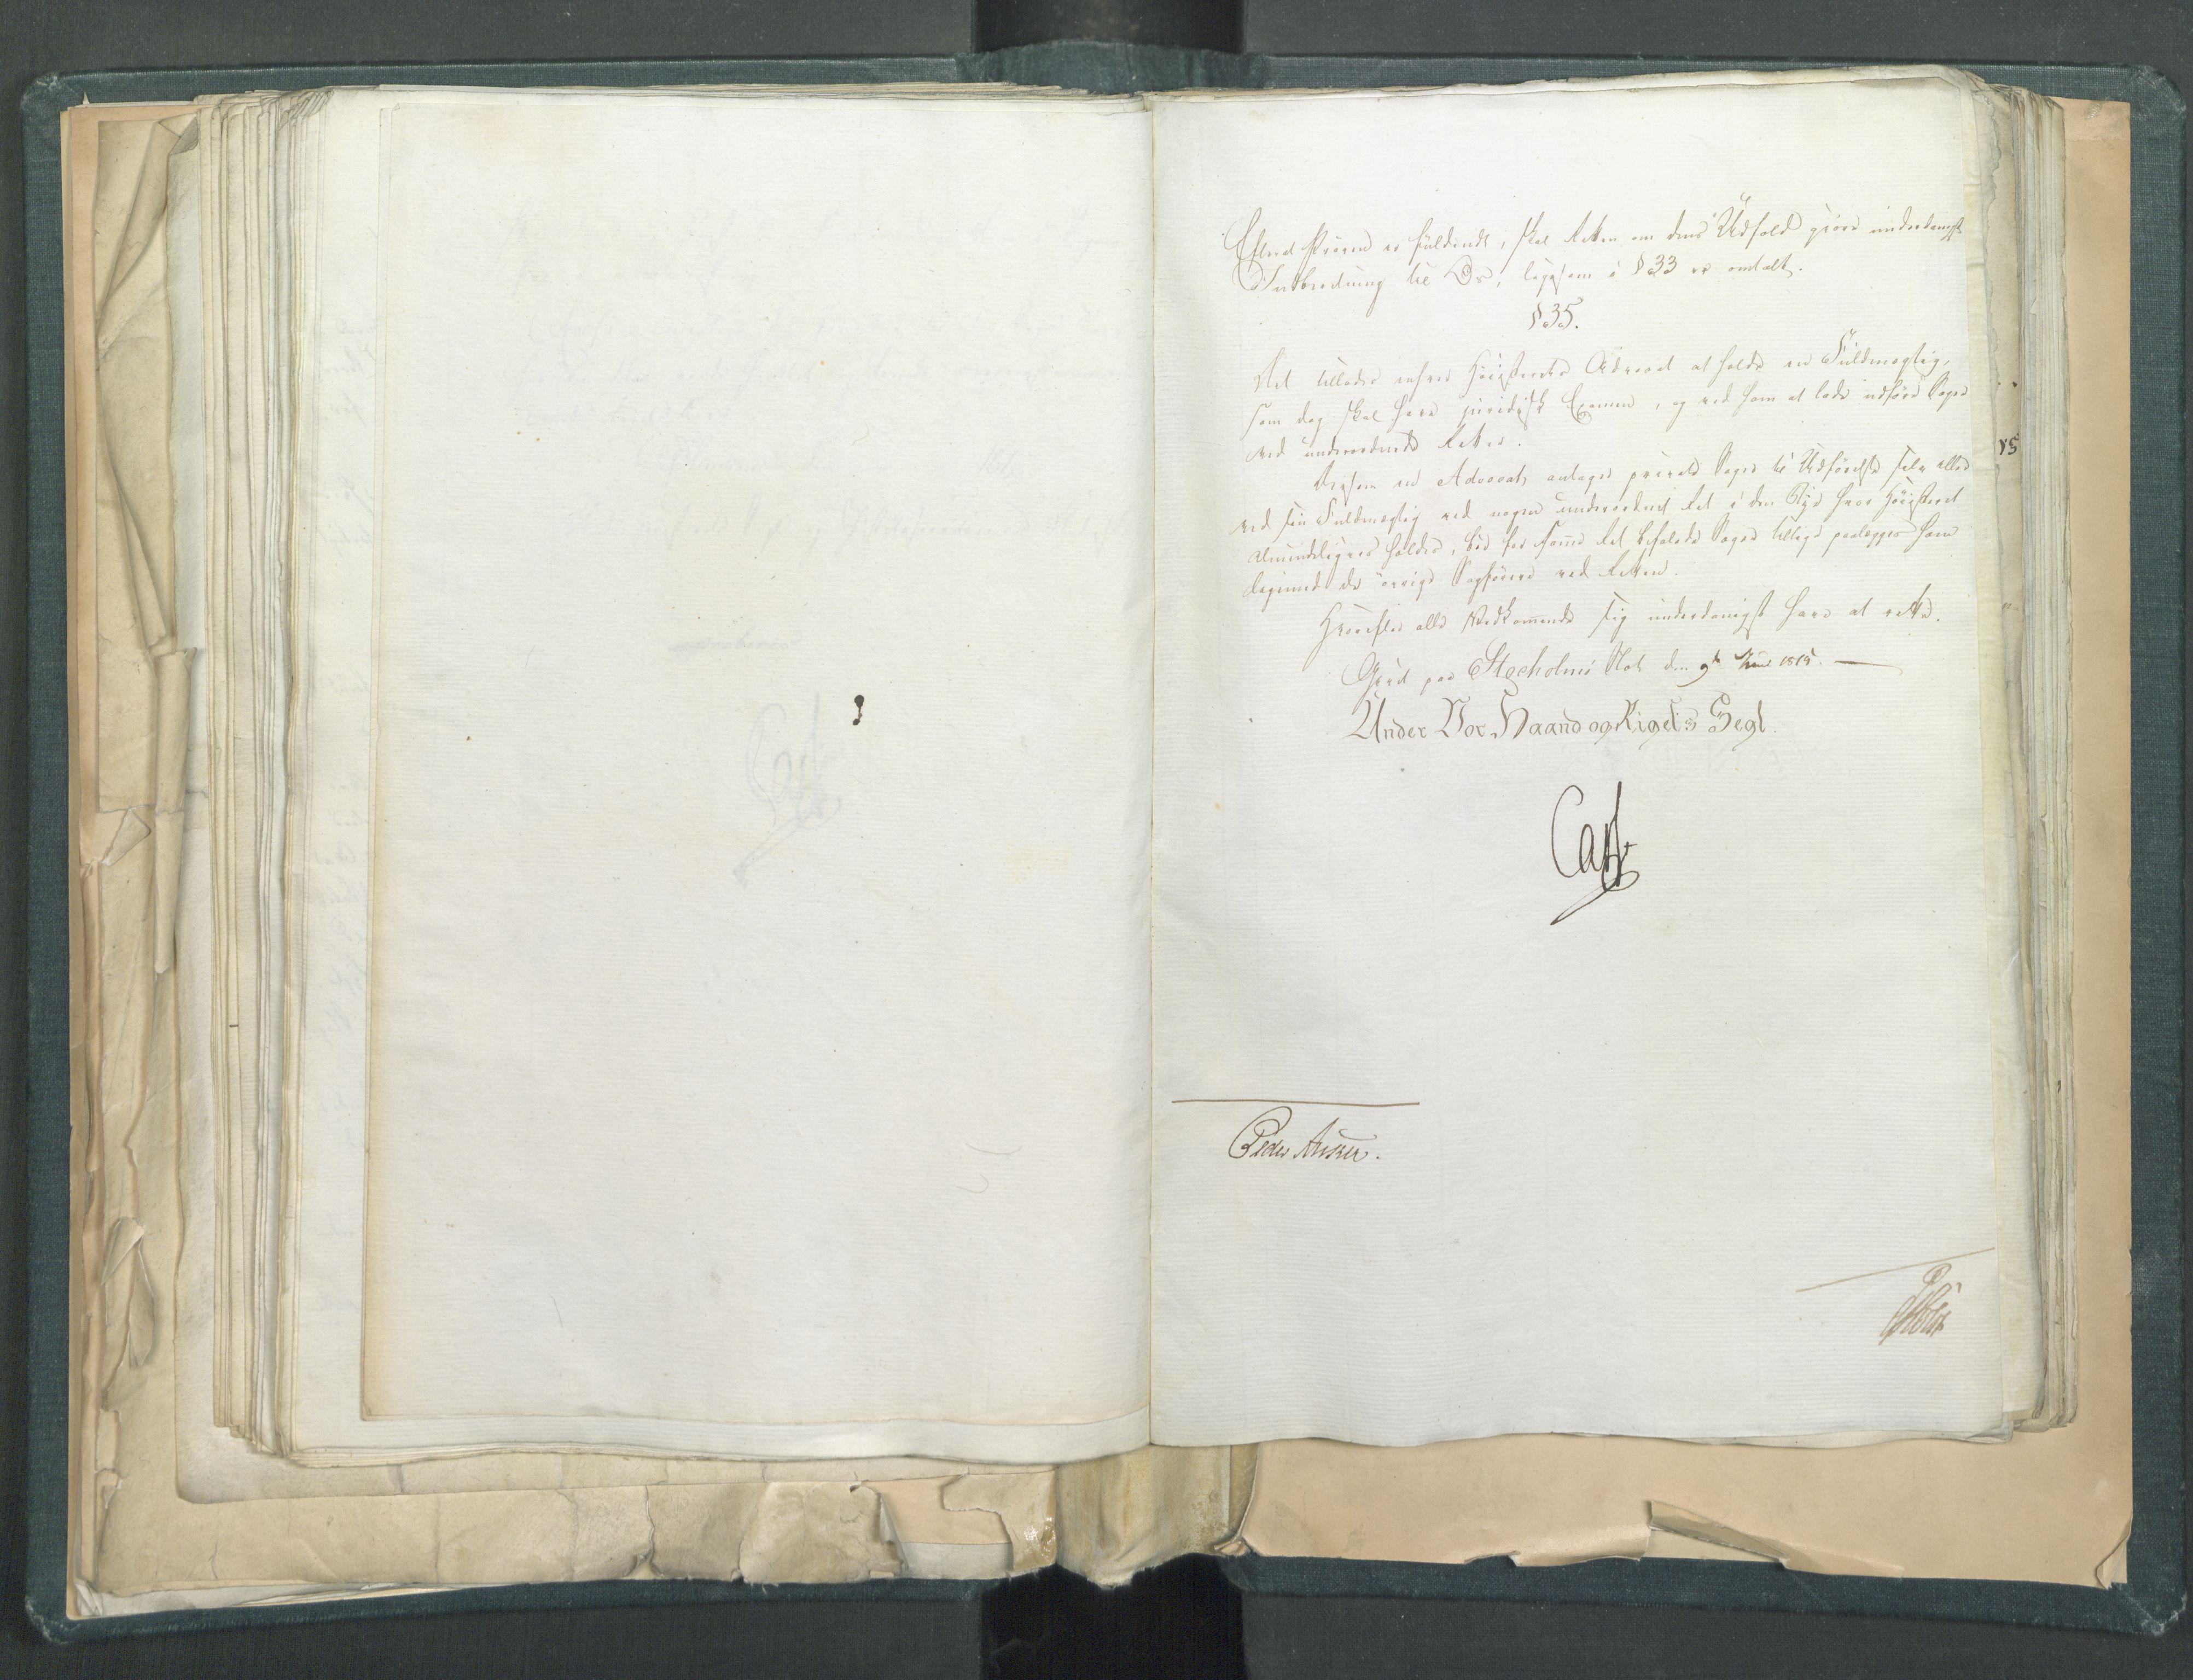 Efterat Prøven er fuldendt, skal Retten om dens Udfald giøre underdanigst
Indberedning til Os, ligesom i § 33 er omtalt.
§ 35.
Det tillades enhver Høiesterets Advocat at holde en Fuldmægtig,
som dog skal have juridisk Examen, og ved ham at lade udføre Sager
ved underordnede Retter.
Dersom en Advocat antager private Sager til Udførelse selv eller
ved sin Fuldmægtig ved nogen underordnet Ret i den Bye hvor Høiesteret
almindeligviis holdes, bør for samme Ret befalede Sager tillige paalægges ham
ligesaavel de øvrige Sagførere ved Retten.
Hvorefter alle Vedkommende sig underdanigst have at rette.
Givet paa Stockholms Slot den 9de Juni 1815.
Under Vor Haand og Rigets Segl.
Carl
Peder Anker.
Holst